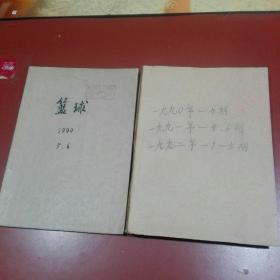 篮球
1990
5.6
一九九〇年一6期
一九九一年一4.6期
一九九二年一1-3期